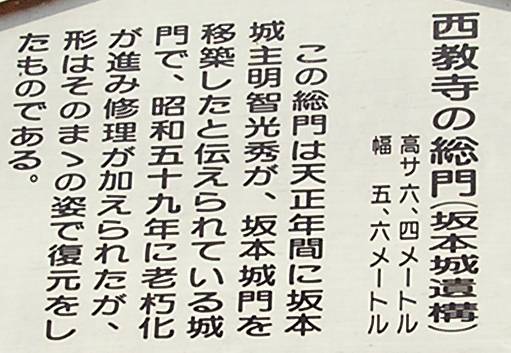 西教寺の総門(坂本城遺構)
高サ 六、四メートル
幅 五、六メートル
この総門は天正年間に坂本
城主明智光秀が、坂本城門を
移築したと伝えられている城
門で、昭和五十九年に老朽化
が進み修理が加えられたが、
形はそのまゝの姿で復元をし
たものである。